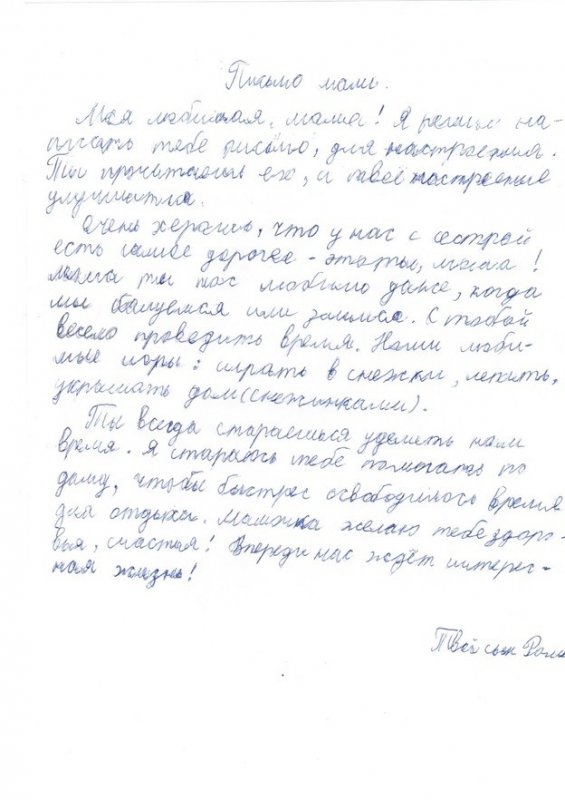 Письмо маме.
Моя любимая, мама! Я решил на-
писать тебе письмо, для настроения.
Ты прочитаешь его, и твоё настроение
улучшитла.
Очень хорошо, что у нас с сестрой
есть самое дорогое - это ты, мама!
Мама ты нас любишь даже, когда
мы балуемся или злимся. С тобой
весело проводить время. Наши люби-
мые игры: играть в снежки, лепить,
украшать дом (снежинками).
Ты всегда стараешься уделить нам
время. Я стараюсь тебе помогать по
дому, чтобы быстрее освободилось время
для отдыха. Мамочка желаю тебе здоро-
вья, счастья! Впереди нас ждёт интерес-
ная жизнь!
Твой сын